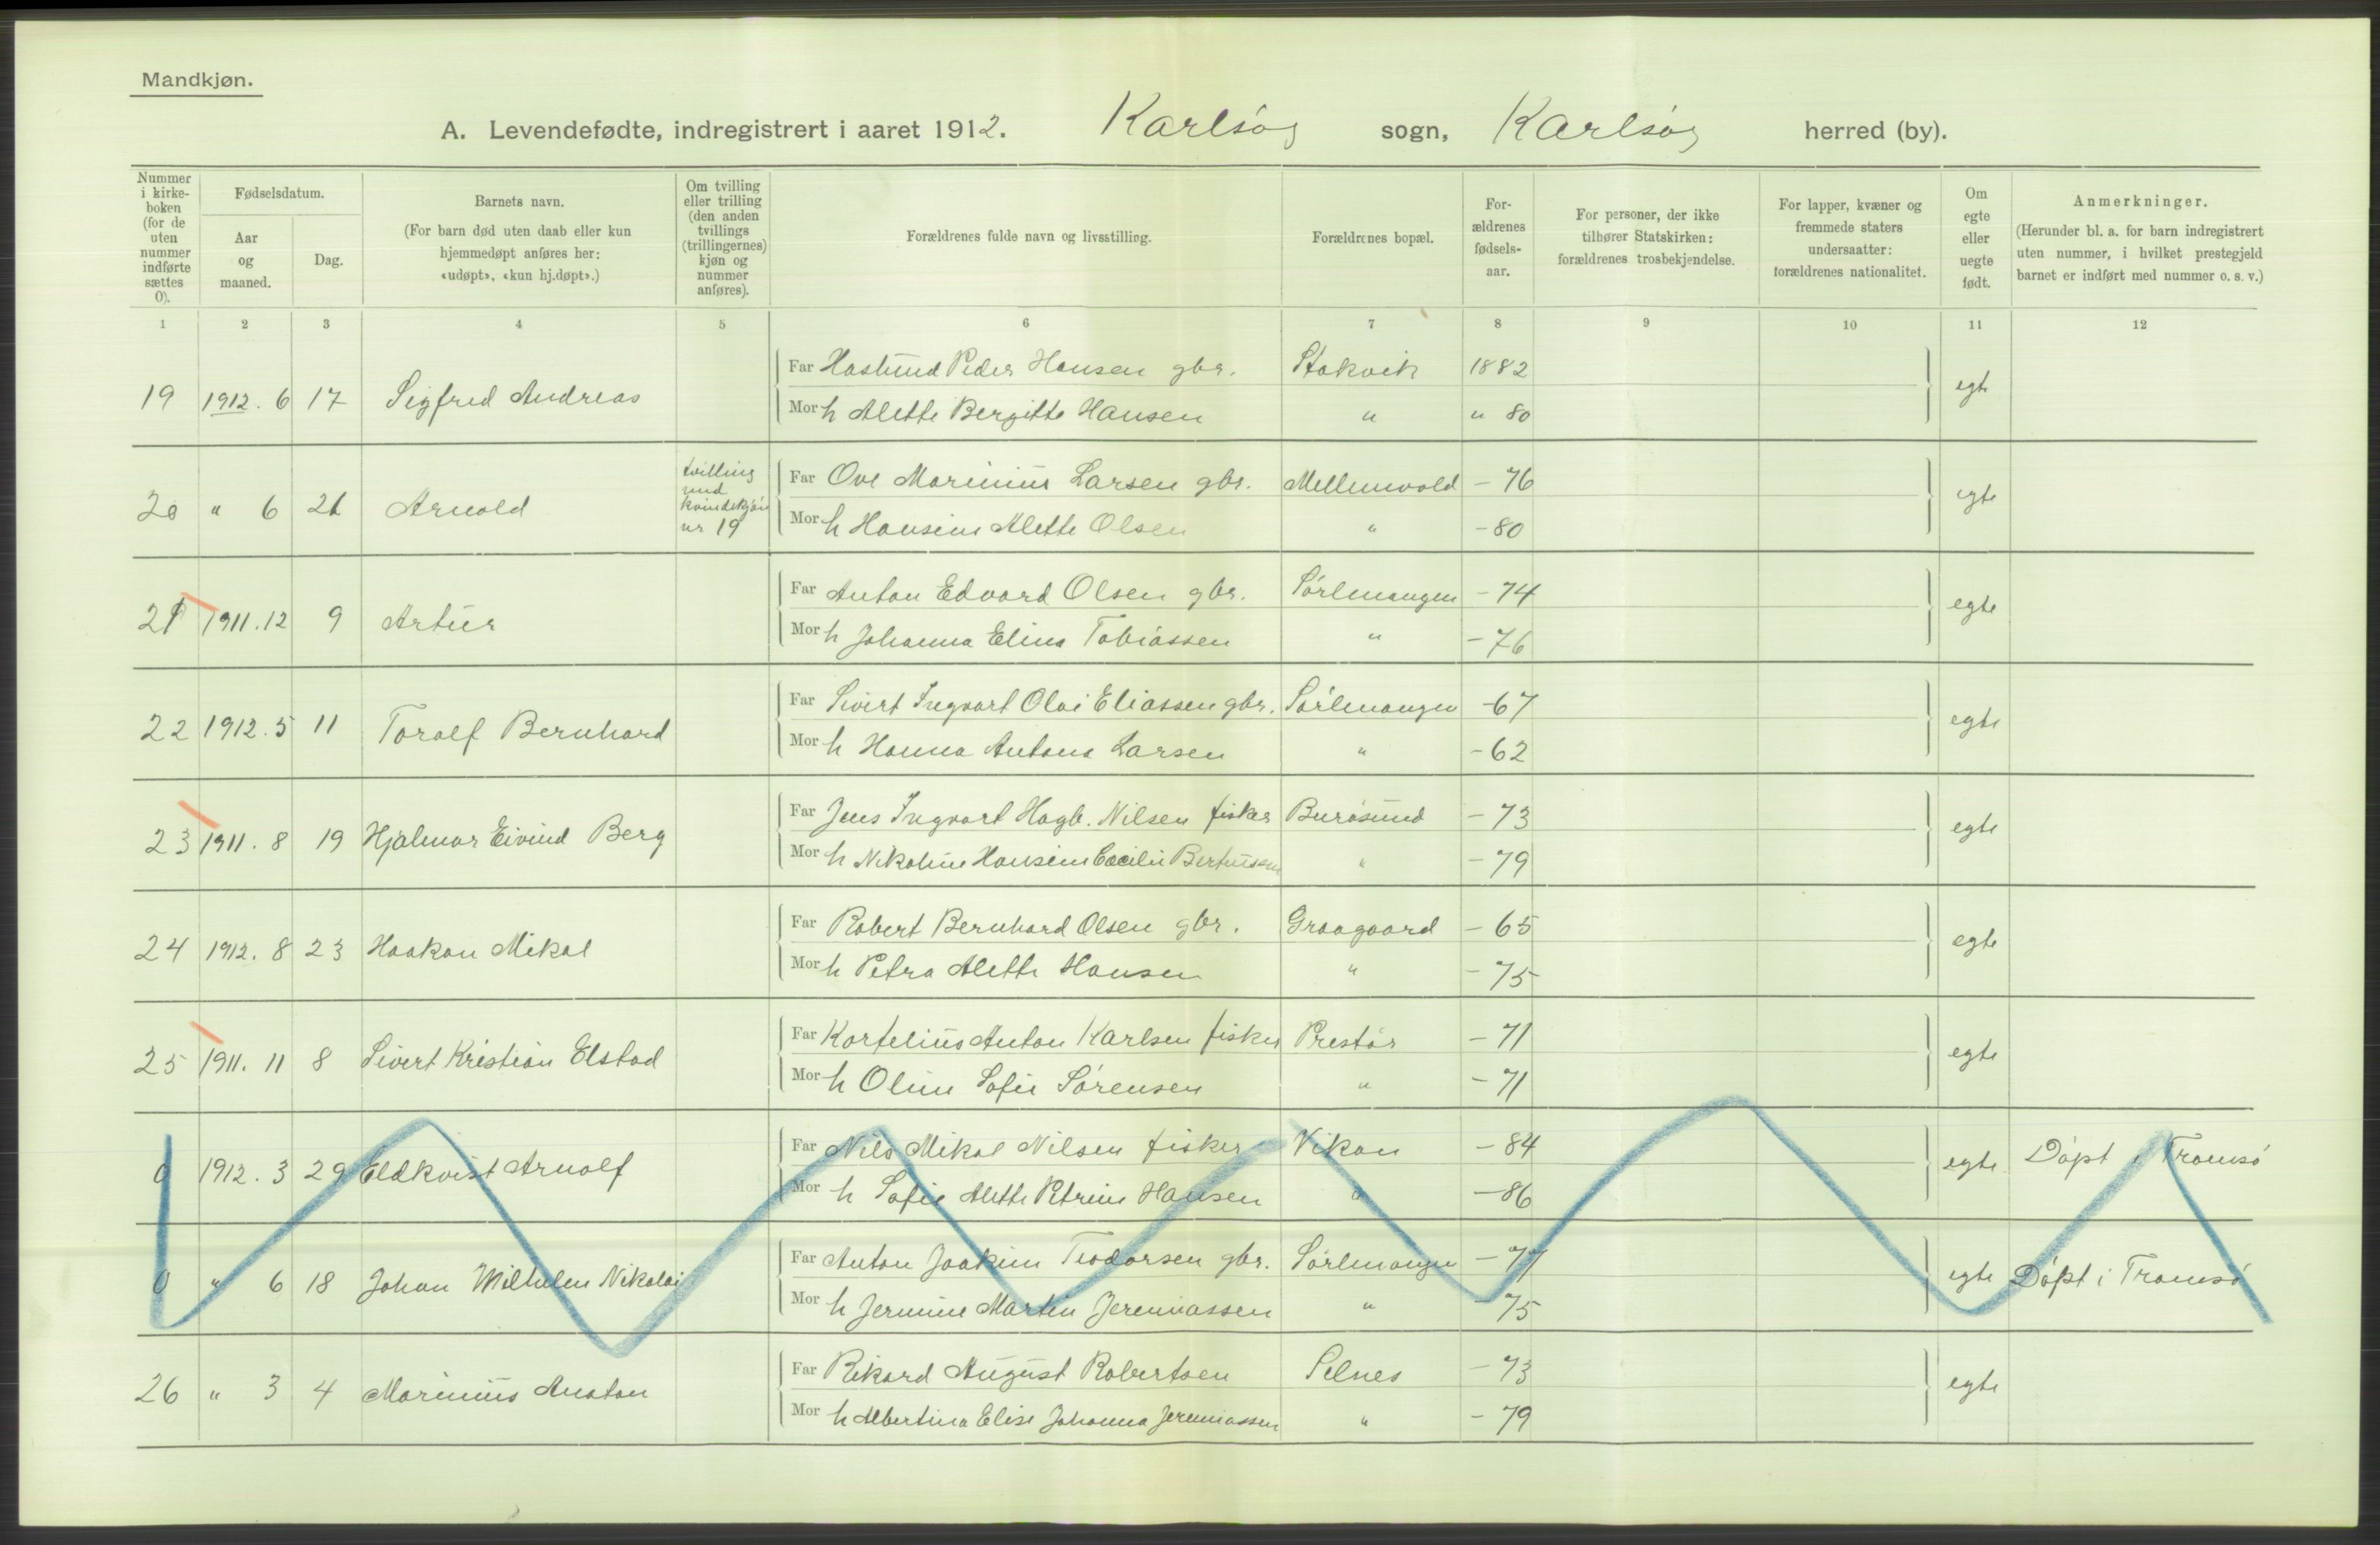 Mandkjøn.
A. Levendefødte, indregistrert i aaret 1912. Karlsøy sogn, Karlsøy herred (by).
Nummer i kirkeboken (for de uten nummer indførte sættes 0).
Fødselsdatum.
Aar og maaned.
Dag.
Barnets navn.
(For barn død uten daab eller kun hjemmedøpt anføres her: «udøpt», «kun hj.døpt».)
Om tvilling eller trilling (den anden tvillings (trillingernes) kjøn og nummer anføres).
Forældrenes fulde navn og livsstilling.
Forældrenes bopæl.
Forældrenes fødselsaar.
For personer, der ikke tilhører Statskirken: forældrenes trosbekjendelse.
For lapper, kvæner og fremmede staters undersaatter: forældrenes nationalitet.
Om egte eller uegte født.
Anmerkninger.
(Herunder bl. a. for barn indregistrert uten nummer, i hvilket prestegjeld barnet er indført med nummer o. s. v.)
1 2 3 4 5 6 7 8 9 10 11 12
19 1912. 6 17 Sigfred Andreas Far Haslund Peder Hansen gbr. Stakvik 1882 egte
Mor h Alette Bergitte Hansen " " 80
20 " 6 21 Arnold tvilling med kvindekjøn nr 19 Far Ove Marinius Larsen gbr. Mellemvold - 76 egte
Mor h Hansine Alette Olsen " - 80
21 1911. 12 9 Artur Far Anton Edvard Olsen gbr. Sørlenangen - 74 egte
Mor h Johanna Elina Tobiassen " - 76
22 1912. 5 11 Toralf Bernhard Far Sivert Ingvart Olai Eliassen gbr. Sørlenangen - 67 egte
Mor h Hanna Antona Larsen " - 62
23 1911. 8 19 Hjalmar Eivind Berg Far Jens Ingvart Hagb. Nilsen fisker Burøsund - 73 egte
Mor h Nikoline Hansine Cæcilie Bertussen " - 79
24 1912. 8 23 Haakon Mikal Far Robert Bernhard Olsen gbr. Graagaard - 65 egte
Mor h Petra Alette Hansen " - 75
25 1911. 11 8 Sivert Kristian Elstad Far Kornelius Anton Karlsen fisker Prestør - 71 egte
Mor h Oline Sofie Sørensen " - 71
0 1912. 3 29 Eldkvist Arnolf Far Nils Mikal Nilsen fisker Vikan - 84 egte Døpt i Tromsø
Mor h Sofie Alette Petrine Hansen " - 86
0 " 6 18 Johan Wilhelm Nikolai Far Anton Joakim Teodorsen gbr. Sørlenangen - 77 egte Døpt i Tromsø
Mor h Jermine Martin Jeremiassen " - 75
26 " 3 4 Marinius Anaton Far Rikard August Robertsen Selnes - 73 egte
Mor h Albertina Elise Johanna Jeremiassen " - 79